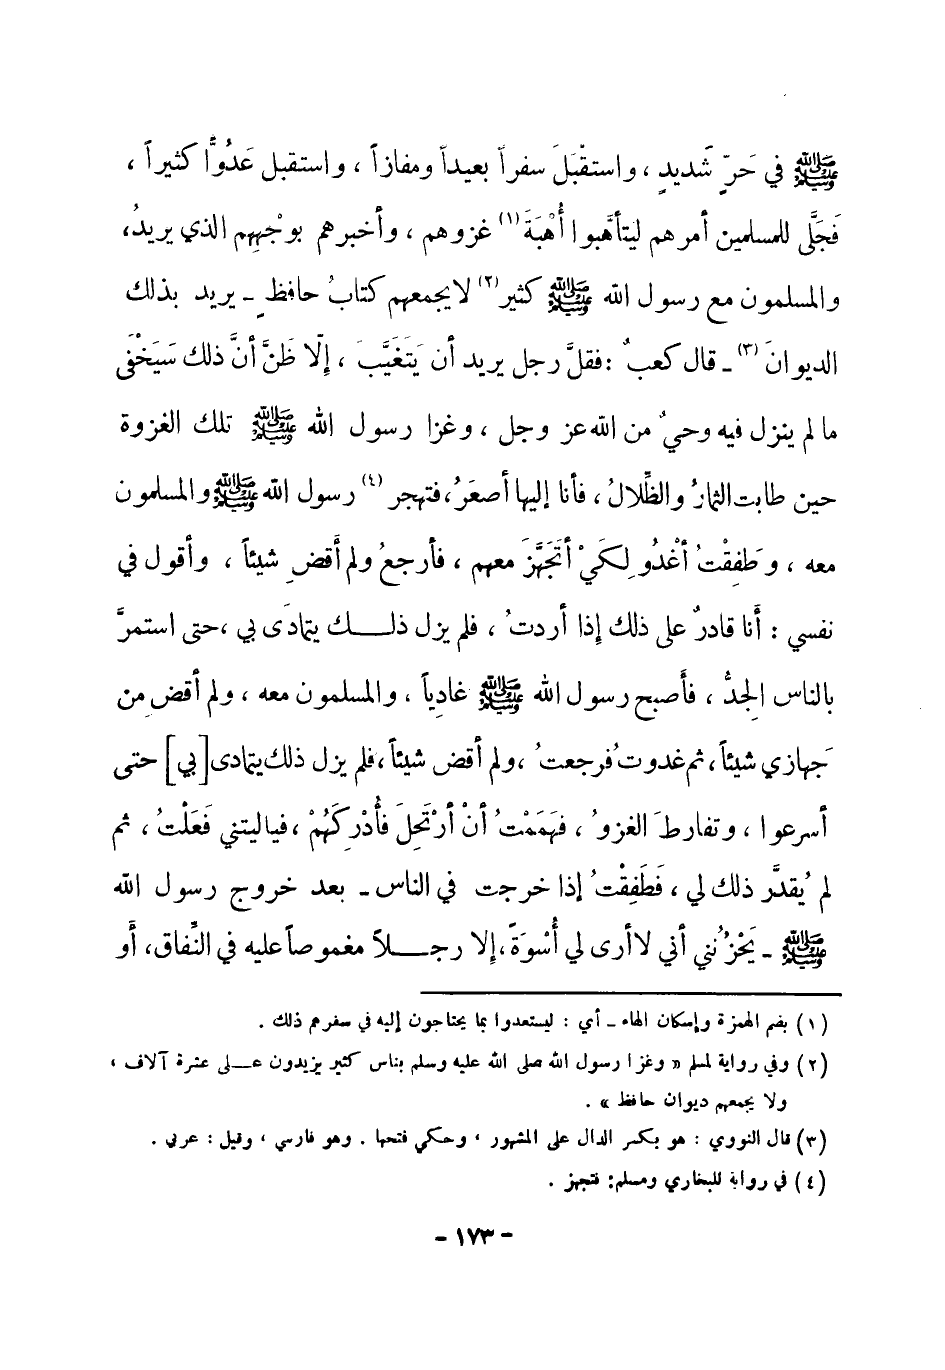 ﷺ في حَرٍّ شَديدٍ ، واستقْبَلَ سفراً بعيداً ومفازاً ، واستقبل عَدُوّاً كثيراً ،
فَجَلَّى للمسلمين أمرهم ليتأهَّبوا أُهْبَةَ (١) غزوهم ، وأخبرهم بوجْهِهِم الذي يريدُ،
والمسلمون مع رسول الله ﷺ كثير (٢) لا يجمعهم كتابُ حافظٍ ـ يريد بذلك
الديوانَ (٣) ـ قال كعبٌ : فقلَّ رجل يريد أن يَتَغَيَّبَ ، إلّا ظَنَّ أنَّ ذلك سَيَخْفَى
ما لم ينزل فيه وحيٌ من الله عز وجل ، وغزا رسول الله ﷺ تلك الغزوة
حين طابت الثمارُ والظِّلالُ ، فأنا إليها أصعَرُ، فتهجر (٤) رسول الله ﷺ والمسلمون
معه ، وطَفِقْتُ أغْدُو لِكَيْ أتَجَهَّزَ معهم ، فأرجعُ ولم أَقضِ شيئاً ، وأقول في
نفسي : أنا قادرٌ على ذلك إذا أردتُ ، فلم يزل ذلـــك يتمادَى بي ، حتى استمرَّ
بالناس الجِدُّ ، فأصبح رسول الله ﷺ غادِياً ، والمسلمون معه ، ولم أقض مِن
جَهازي شيئاً ، ثم غدوت فرجعتُ ، ولم أقض شيئاً ، فلم يزل ذلك يتمادى [بي] حتى
أسرعوا ، وتفارطَ الغزوُ ، فهَمَمْتُ أنْ أرْتَحِلَ فأُدْركَهُمْ ، فياليتني فَعَلْتُ ، ثم
لم يُقدَّر ذلك لي ، فَطَفِقْتُ إذا خرجت في الناس ـ بعد خروج رسول الله
ﷺ ـ يَحْزُنني أني لا أرى لي أُسْوَةً ، إلا رجـــلاً مغموصاً عليه في النِّفاق، أَو
(١) بضم الهمزة وإسكان الهاء ـ أي : ليستعدوا بما يحتاجون إليه في سفرهم ذلك .
(٢) وفي رواية لمسلم « وغزا رسول الله صلى الله عليه وسلم بناس كثير يزيدون عـــلى عشرة آلاف ،
ولا يجمعهم ديوان حافظ » .
(٣) قال النووي : هو بكسر الدال على المشهور ، وحكي فتحها . وهو فارسي ، وقيل : عربي .
(٤) في رواية للبخاري ومسلم: فتجهز .
- ١٧٣ -